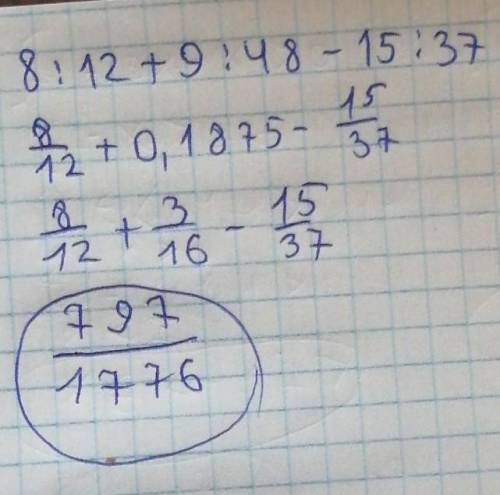 8:12+9:48-15:37
8/12 + 0,1875 - 15/37
8/12 + 3/16 - 15/37
797/1776